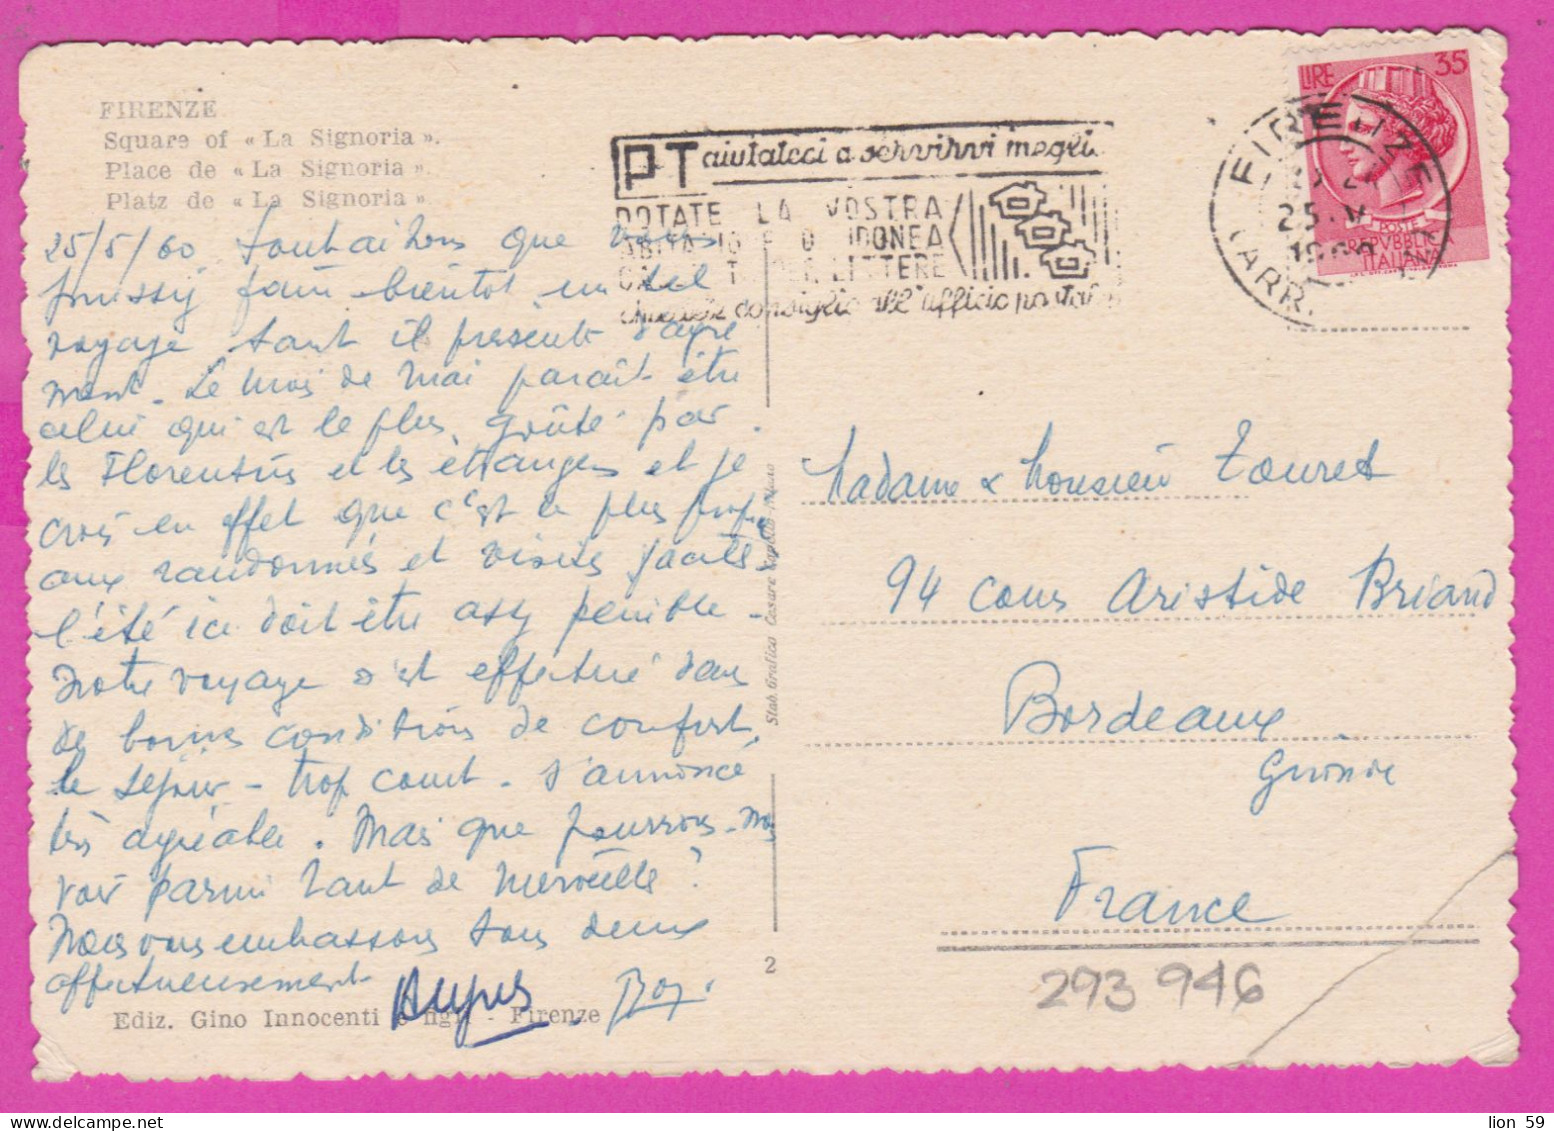 FIRENZE
Square of « La Signoria ».
Place de « La Signoria ».
Platz de « La Signoria »
25/5/60 Souhaitons que vous
puissiez faire bientôt un tel
voyage tant il présente d'agré
ment. Le mois de mai paraît être
celui qui est le plus goûté par
les Florentins et les étrangers et je
crois en effet que c'est le plus propice
aux randonnées et visites
l'été ici doit être assez pénible.
Notre voyage s'est effectué dans
de bonnes conditions de confort,
le séjour - trop court - s'annonce
très agréable. Mais que pourrons-nous
voir parmi tant de merveilles ?
Nous vous embrassons tous deux
affectueusement
Ediz. Gino Innocenti e figli - Firenze
Stab. Grafico Cesare
2
PT aiutateci a servirvi meglio
DOTATE LA VOSTRA
ABITAZIONE D IDONEA
CASSETTA PER LETTERE
chiedete consiglio all'ufficio postale
FIRENZE
25.V
1960
ARR.
LIRE 35
POSTE
REPVBBLICA
ITALIANA
Madame & Monsieur Touret
94 cours Aristide Briand
Bordeaux
Gironde
France
293 946
lion 59